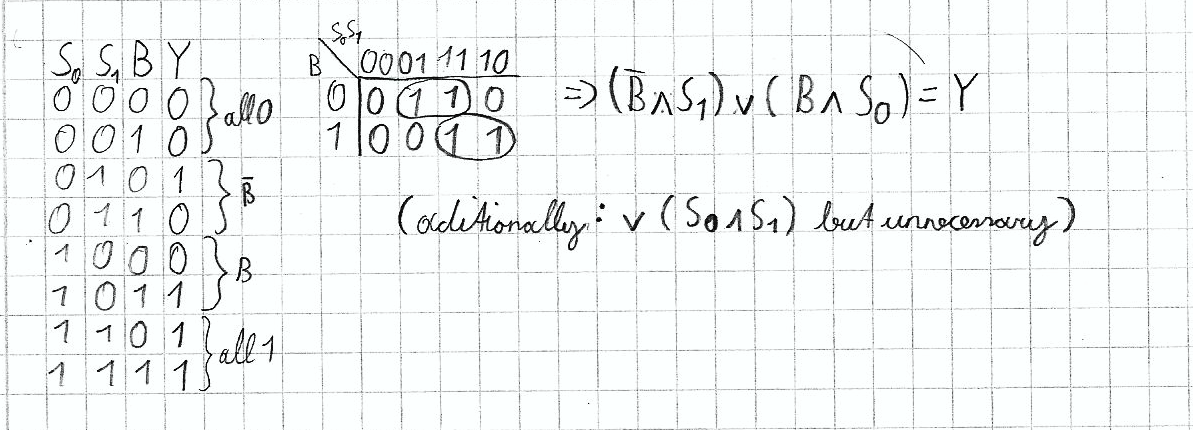 S₀ S₁ B Y
0 0 0 0
0 0 1 0
} all 0
0 1 0 1
0 1 1 0
} B̄
1 0 0 0
1 0 1 1
} B
1 1 0 1
1 1 1 1
} all 1
S₀S₁
B 00 01 11 10
0 0 1 1 0
1 0 0 1 1
=> (B̄ ∧ S₁) ∨ (B ∧ S₀) = Y
(aditionally: ∨ (S₀ ∧ S₁) but unnecessary)